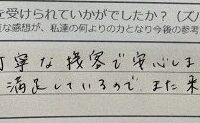 を受けられていかがでしたか？（ズバ
な感想が、私達の何よりの力となり今後の参考
丁寧な接客で安心しま
満足しているので、また来